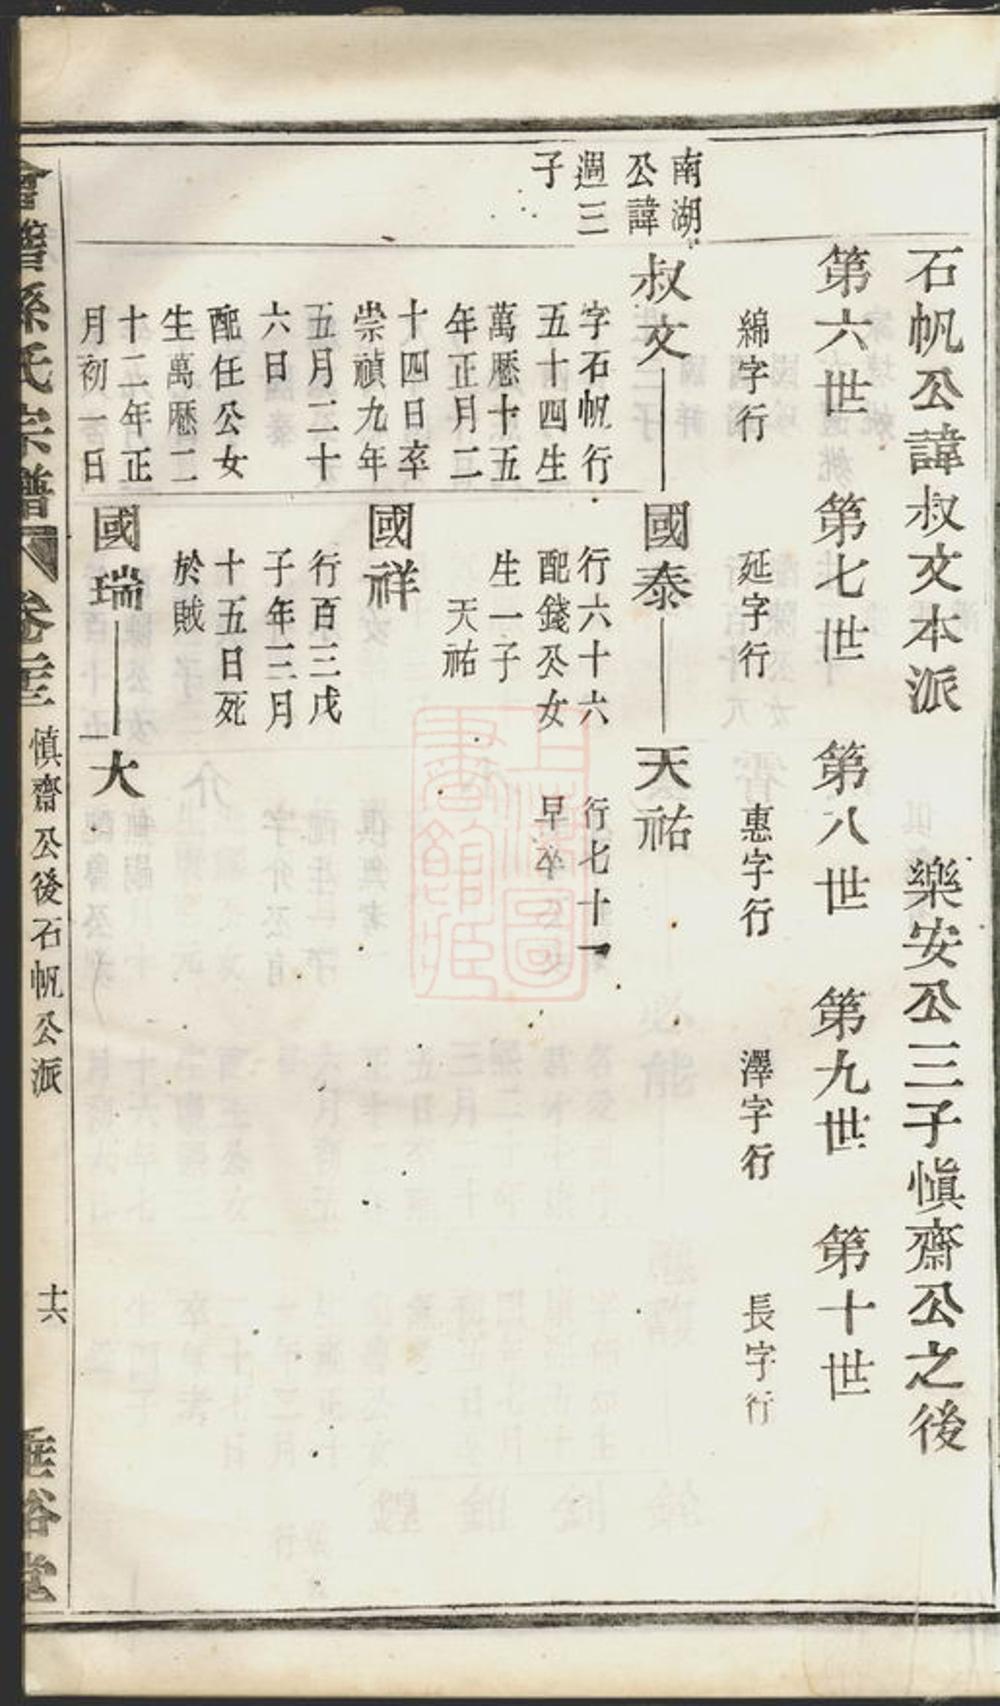 石帆公諱叔文本派　樂安公三子愼齋公之後
第六世　第七世　第八世　第九世　第十世
綿字行　延字行　惠字行　澤字行　長字行
南湖
公諱
週三
子
叔文
字石帆行
五十四生
萬曆十五
年正月二
十四日卒
崇禎九年
五月二十
六日
配任公女
生萬曆二
十二年正
月初一日
國泰
行六十六
配錢公女
生一子
天祐
天祐
行七十一
早卒
國祥
行百三戊
子年三月
十五日死
於賊
國瑞
大
會稽孫氏宗譜
慎齋公後石帆公派
十六
垂裕堂
上海圖書館藏